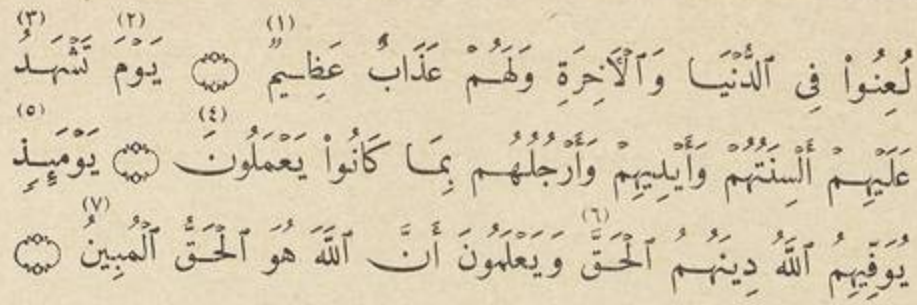 لُعِنُوا۟ فِى ٱلدُّنْيَا وَٱلْأَخِرَةِ وَلَهُمْ عَذَابٌ عَظِيمٌ (١) ۝ يَوْمَ (٢) تَشْهَدُ (٣)
عَلَيْهِمْ أَلْسِنَتُهُمْ وَأَيْدِيهِمْ وَأَرْجُلُهُم بِمَا كَانُوا۟ يَعْمَلُونَ (٤) ۝ يَوْمَئِذٍ (٥)
يُوَفِّيهِمُ ٱللَّهُ دِينَهُمُ ٱلْحَقَّ (٦) وَيَعْلَمُونَ أَنَّ ٱللَّهَ هُوَ ٱلْحَقُّ ٱلْمُبِينُ (٧) ۝